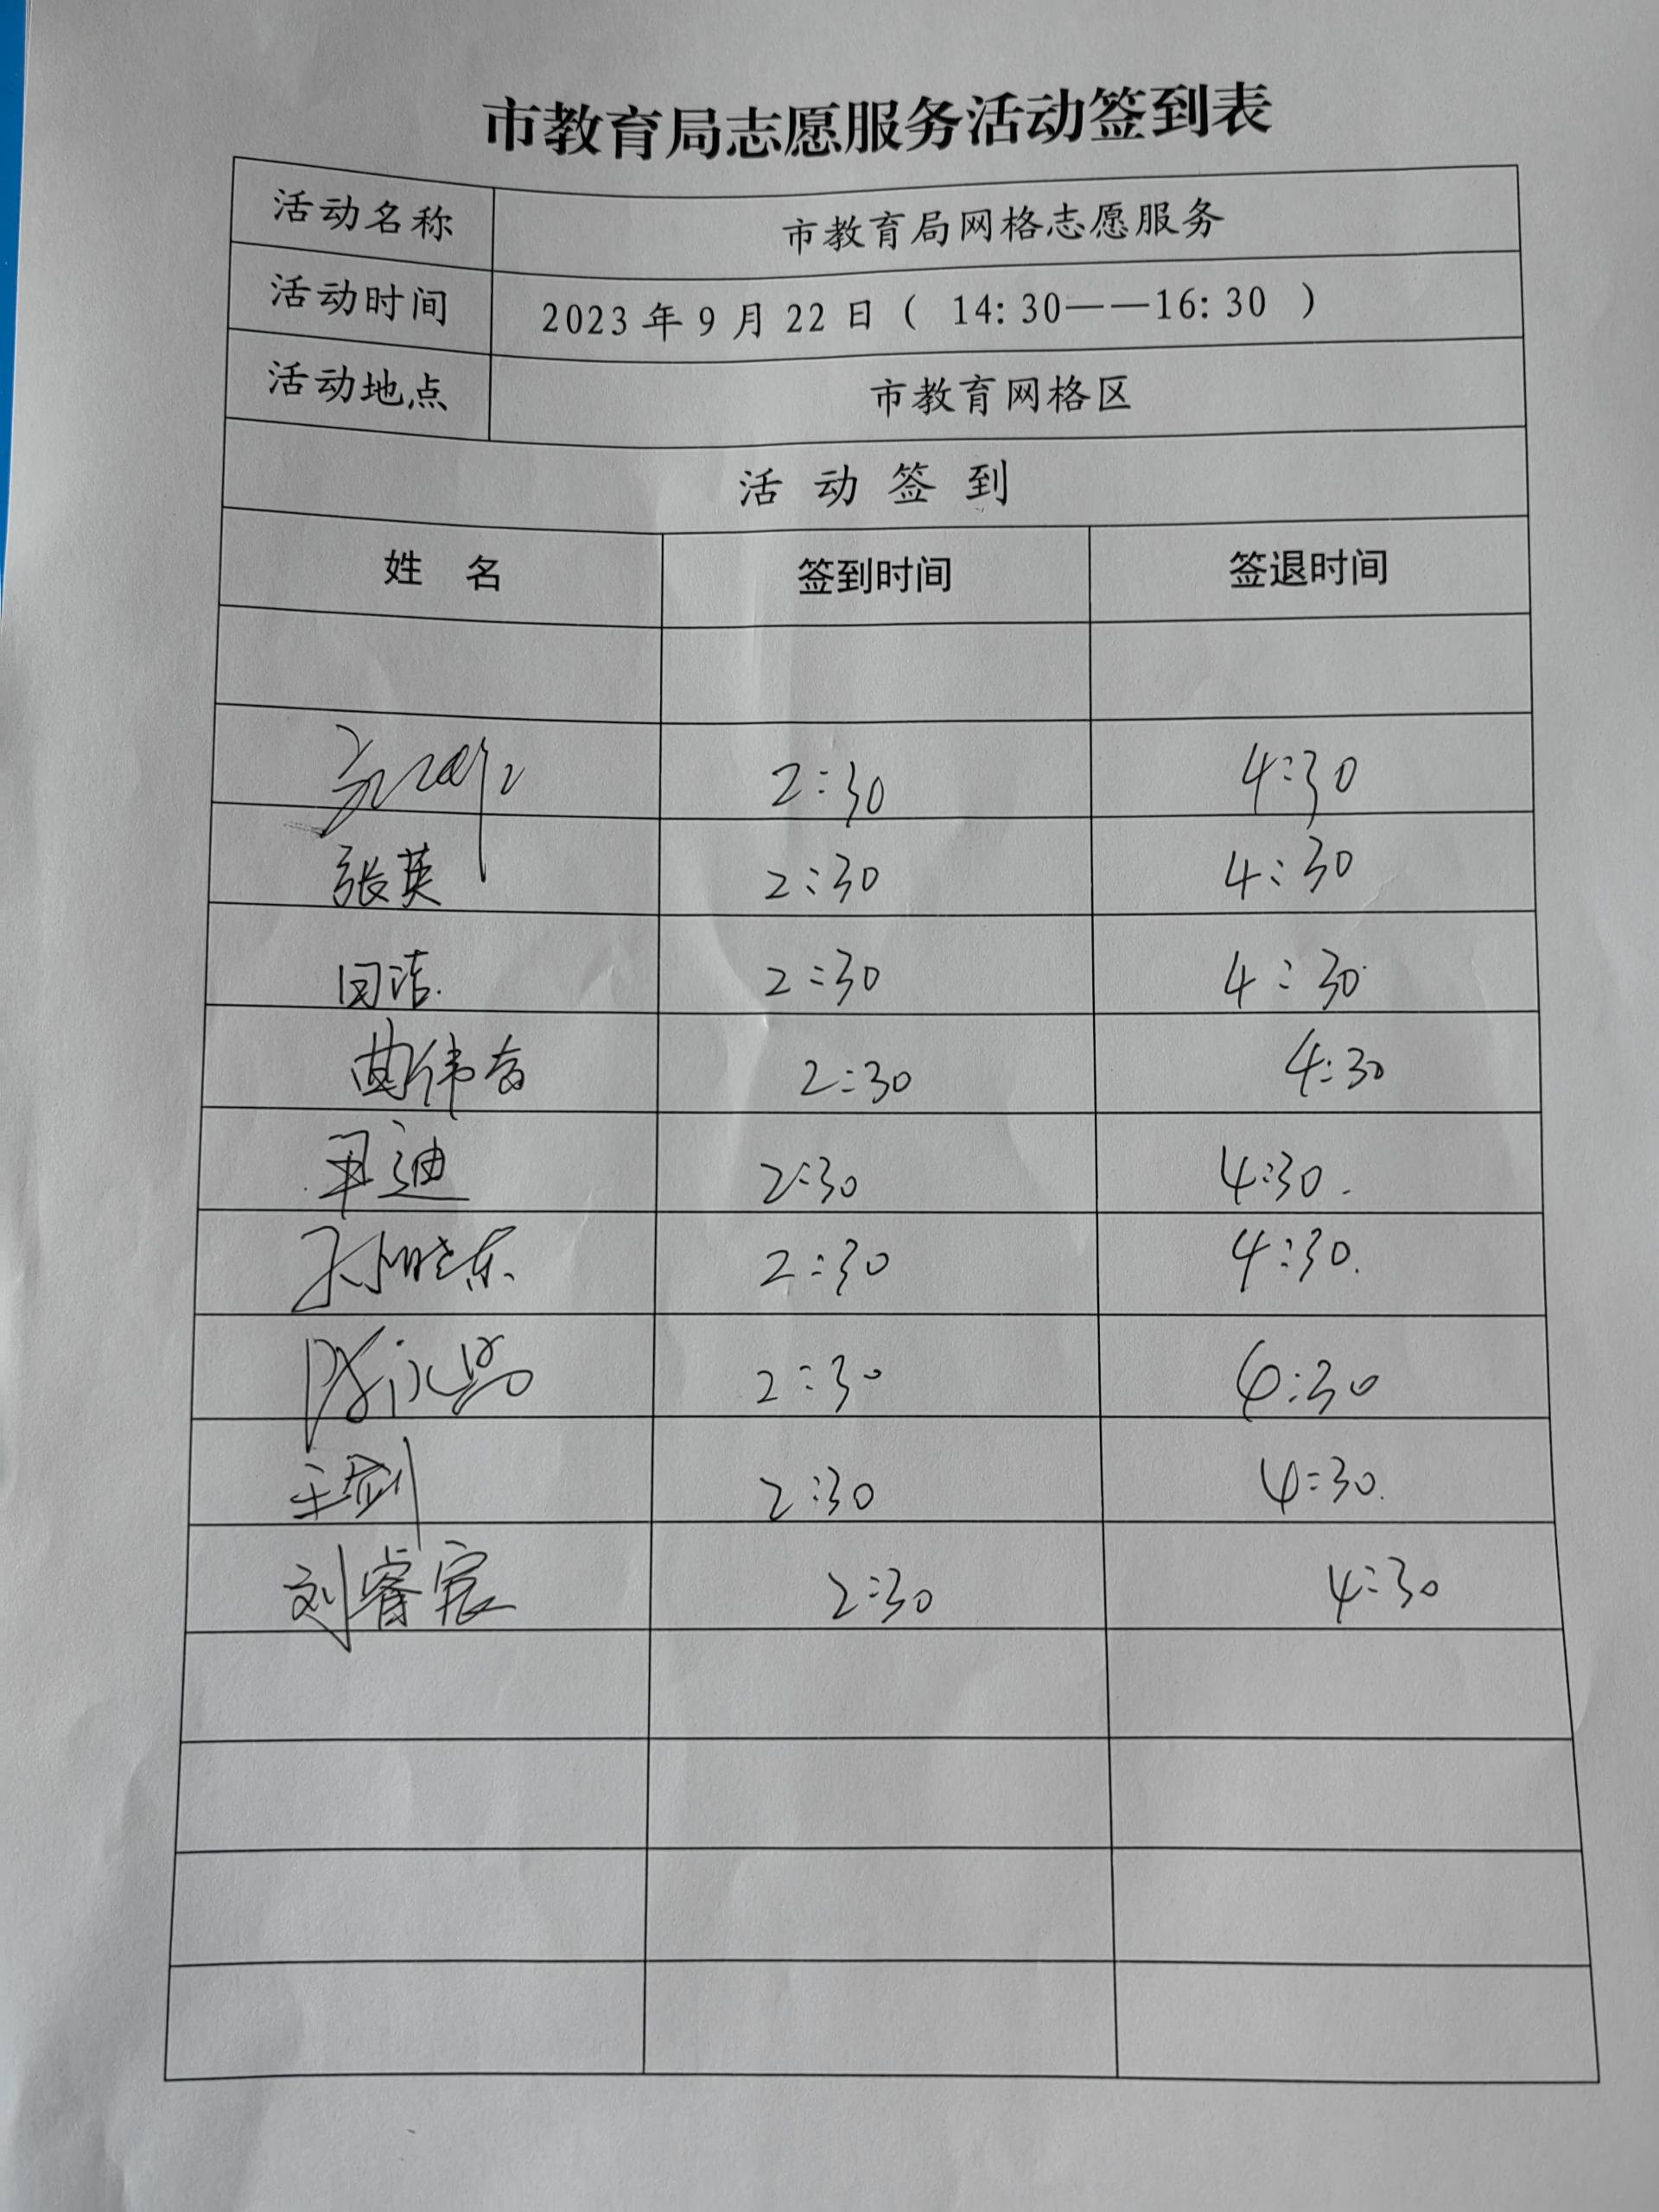 市教育局志愿服务活动签到表
活动名称 市教育局网格志愿服务
活动时间 2023年9月22日( 14:30——16:30 )
活动地点 市教育网格区
活动签到
姓 名 签到时间 签退时间
2:30 4:30
张英 2:30 4:30
闫洁. 2:30 4:30
曲伟 2:30 4:30
迪 2:30 4:30.
孙晓东. 2:30 4:30.
陈永 2:30 4:30
王剑 2:30 4:30.
刘睿宸 2:30 4:30